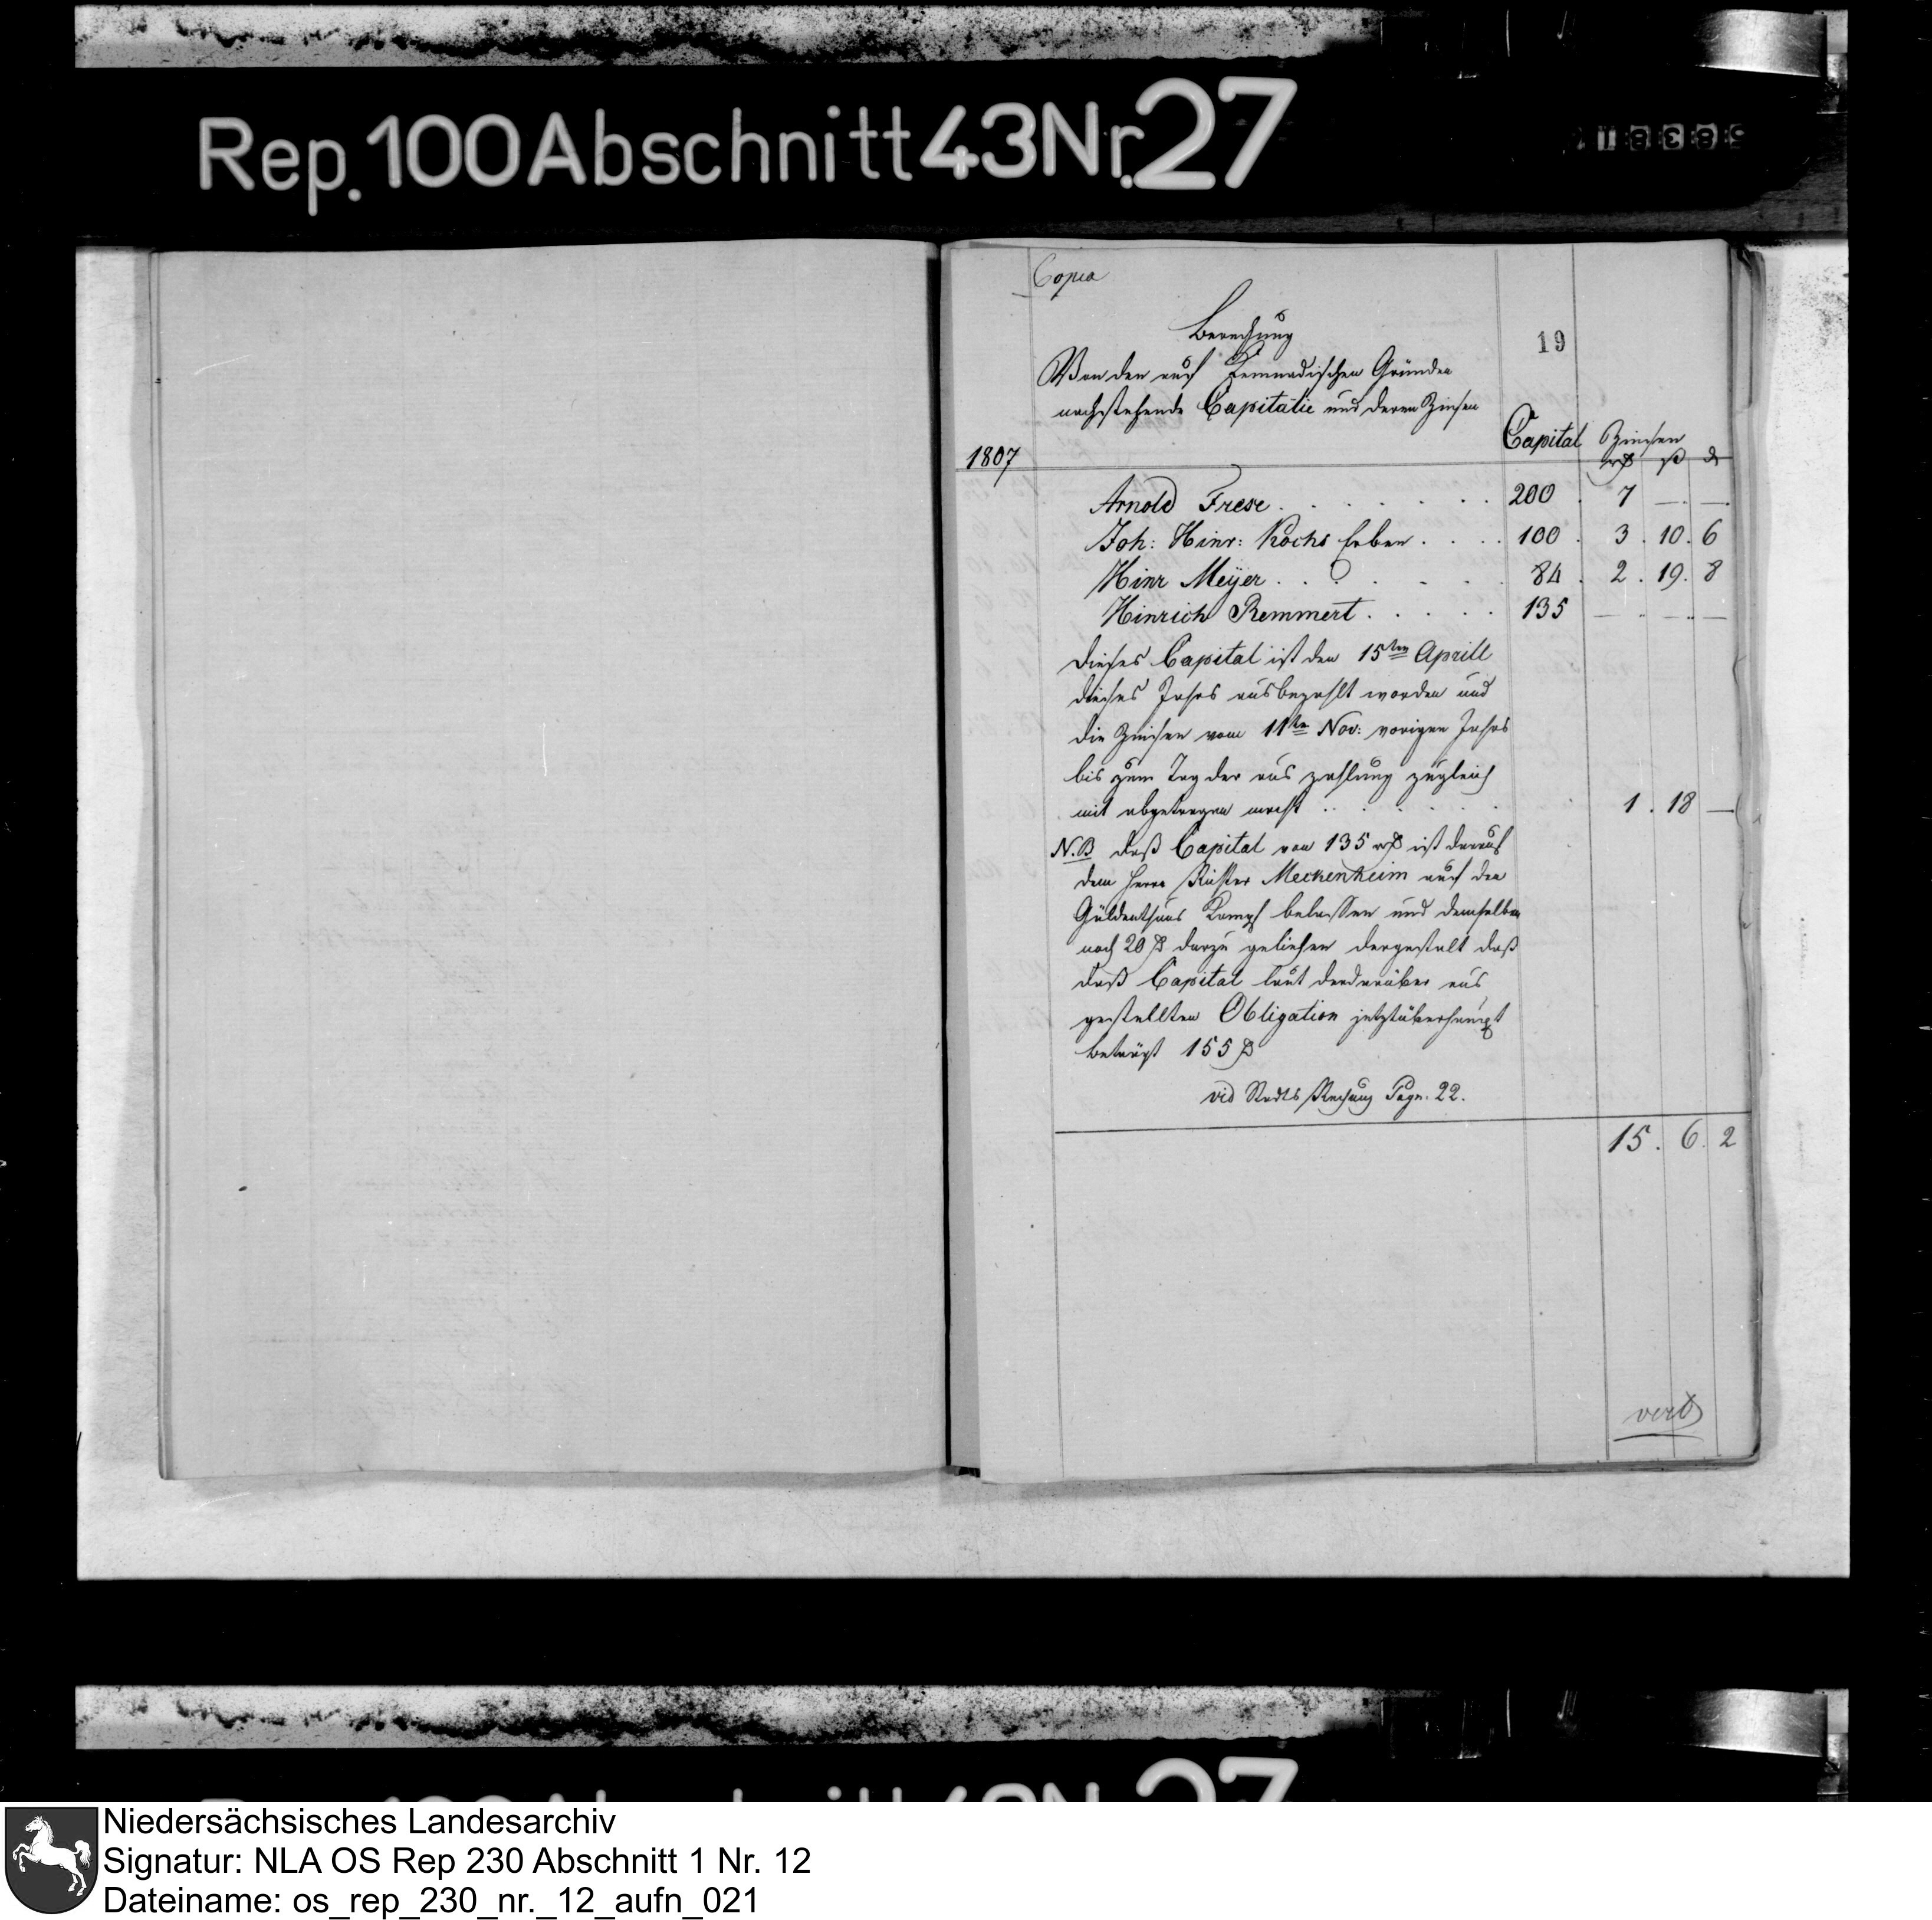 Rep. 100 Abschnitt 43 Nr. 27
Copia
Berechnung
19
Von den auf Kemnadischen Gründen
nachstehende Capitalie und deren Zinsen
Capital Zinsen
1807 rß ß d
Arnold Frese . . . . . . . 200 . 7 — —
Joh: Hinr: Kochs Erben . . . . 100 . 3 . 10 . 6
Hinr Meÿer . . . . . . . 84 . 2 . 19 . 8
Hinrich Remmert . . . . . 135 — — —
dieses Capital ist den 15ten Aprill
dieses Jahrs ausbezahlt worden und
die Zinsen vom 11ten Nov: vorigen Jahrs
bis zum Tag der aus zahlung zugleich
mit abgetragen macht . . . . . 1 . 18 —
N.B daß Capital von 135 rß ist darauf
dem Herrn Küster Meckenheim auf den
Kamp belassen und demselben
noch 20 ß darzu geliehen dergestalt daß
daß Capital laut der darüber aus
gestellten Obligation jetzt überhaupt
beträgt 155 ß
vid Stadts Rechnung Pagn. 22.
15 . 6 . 2
Niedersächsisches Landesarchiv
Signatur: NLA OS Rep 230 Abschnitt 1 Nr. 12
Dateiname: os_rep_230_nr._12_aufn_021